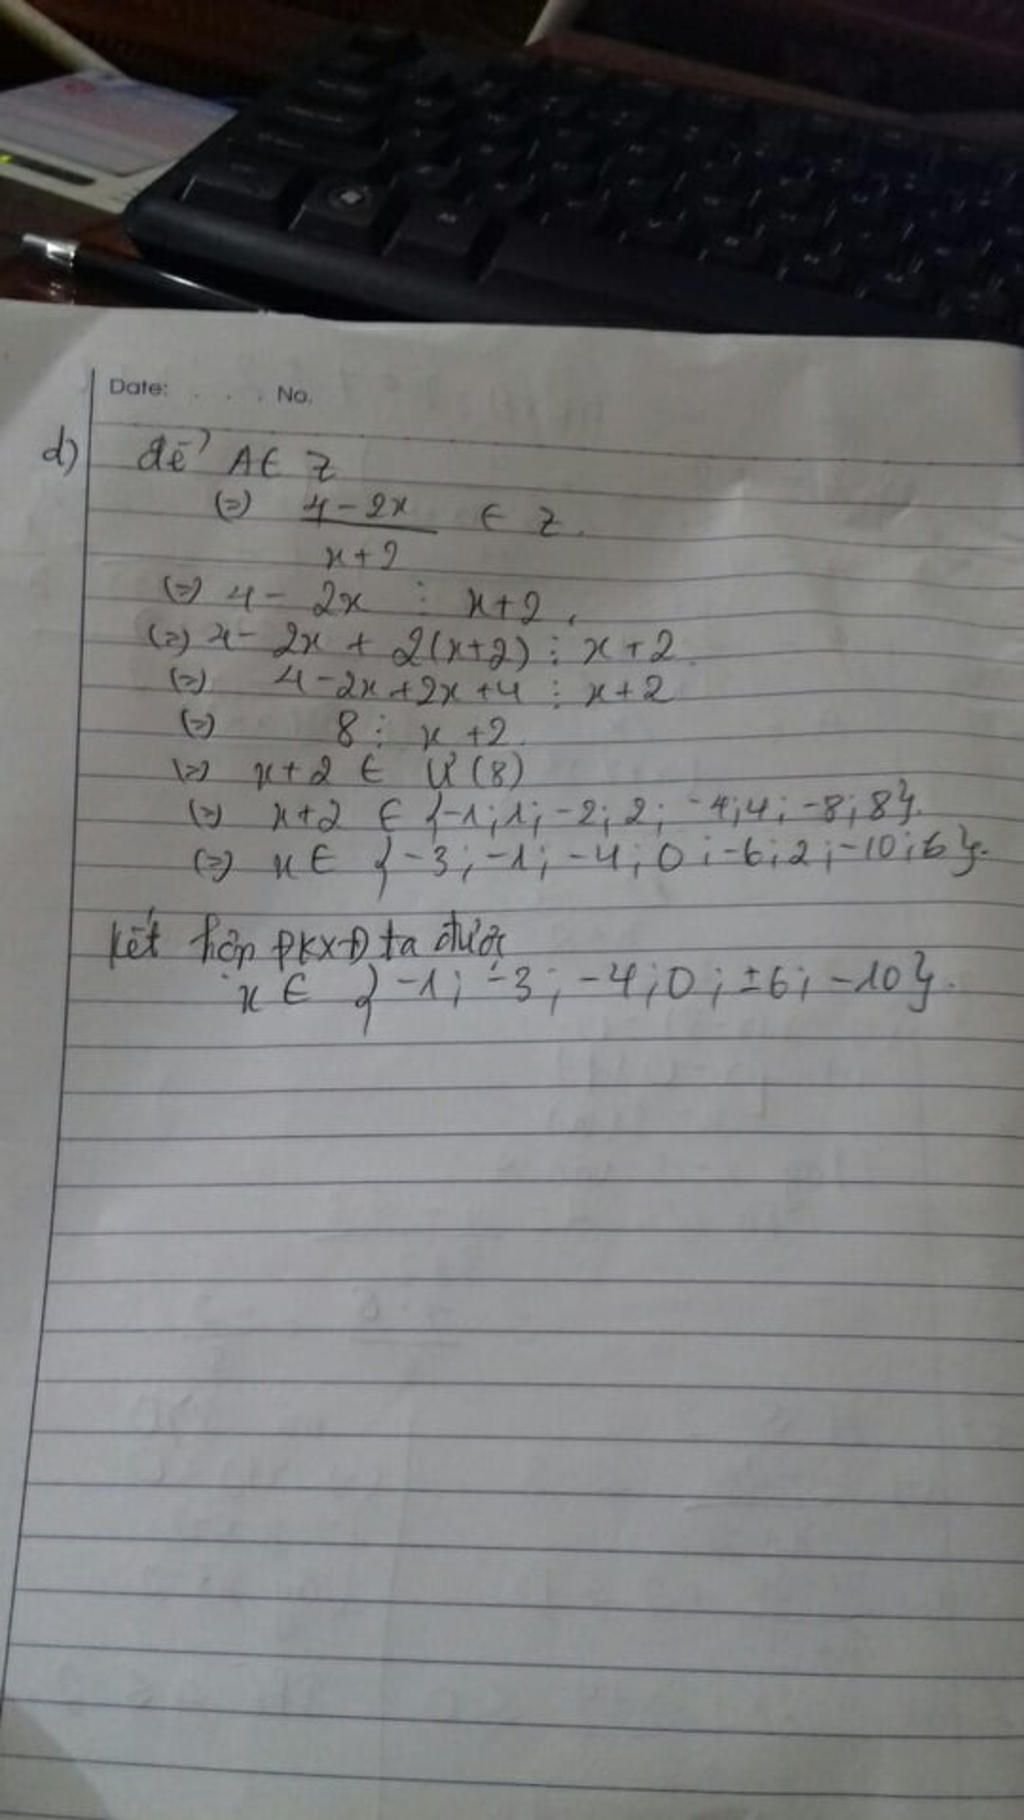 Date: . . . No.
d) để A ∈ Z
(=) 4 - 2x / x + 2 ∈ Z.
(=) 4 - 2x ⋮ x + 2.
(=) 4 - 2x + 2(x+2) ⋮ x + 2.
(=) 4 - 2x + 2x + 4 ⋮ x + 2
(=) 8 ⋮ x + 2.
(=) x + 2 ∈ Ư(8)
(=) x + 2 ∈ {-1; 1; -2; 2; -4; 4; -8; 8}.
(=) x ∈ {-3; -1; -4; 0; -6; 2; -10; 6}.
kết hợp ĐKXĐ ta được
x ∈ {-1; -3; -4; 0; ±6; -10}.